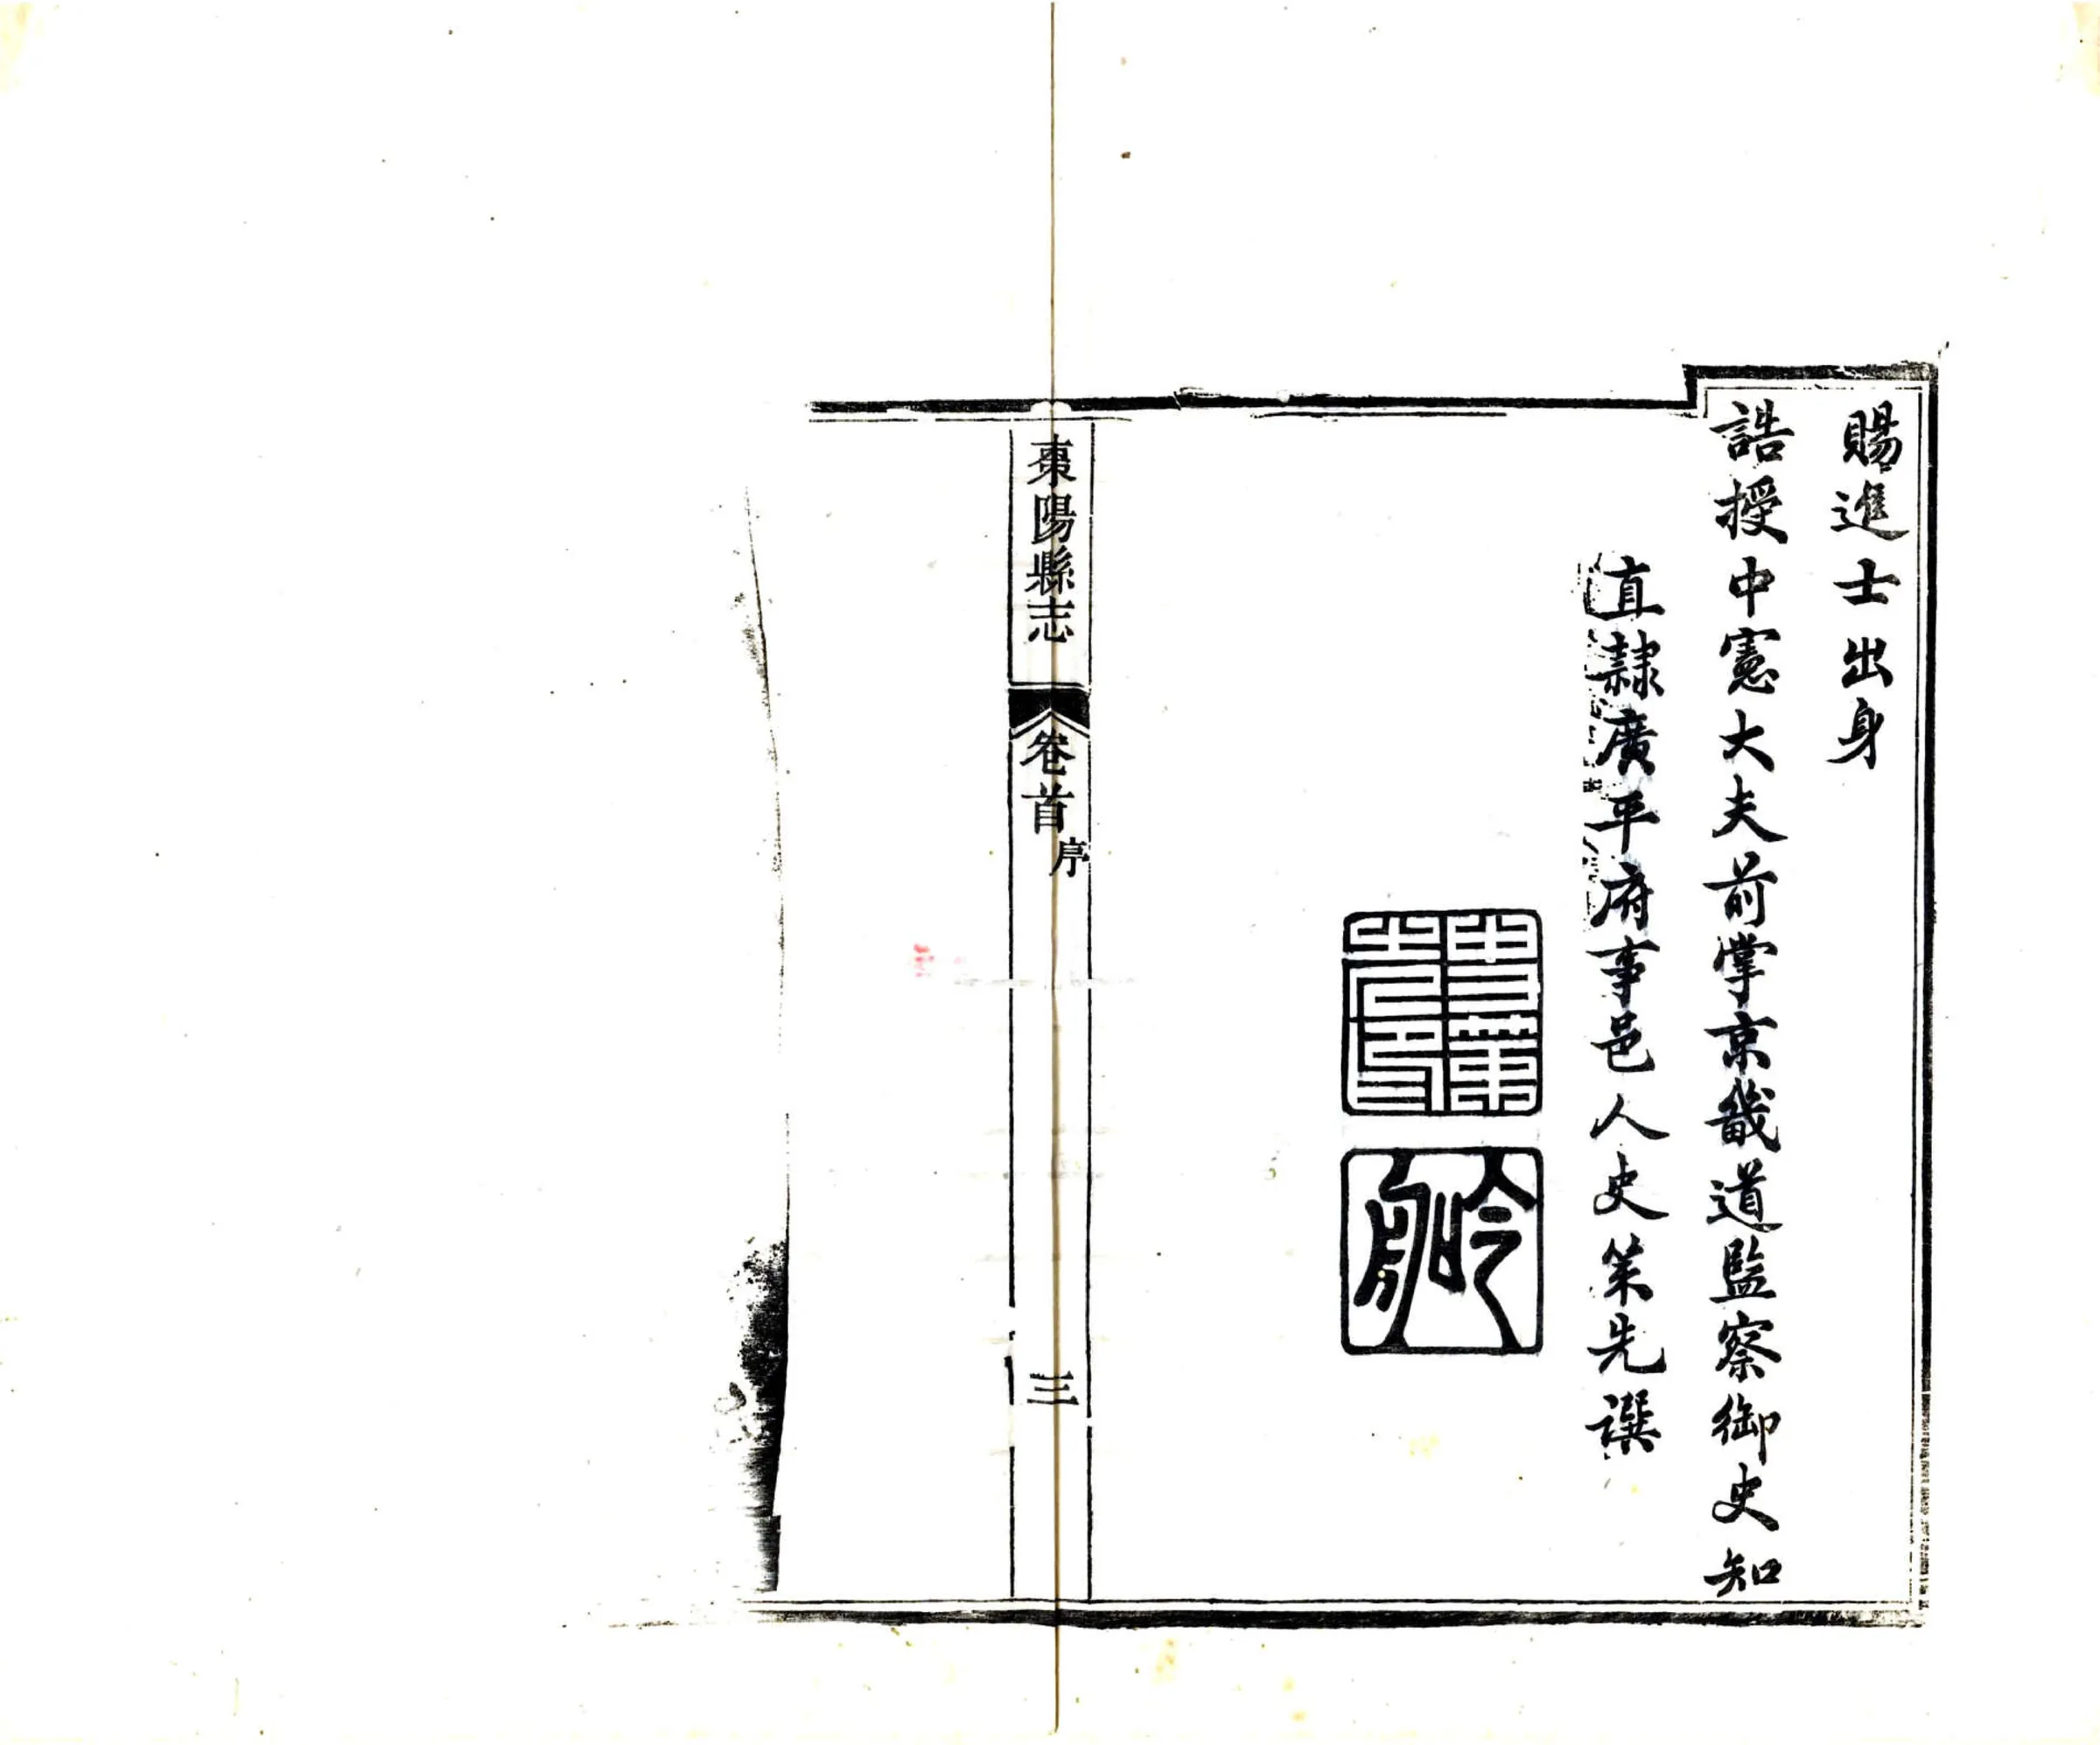 賜進士出身
誥授中憲大夫前掌京畿道監察御史知
直隸廣平府事邑人史策先譔
棗陽縣志
卷首
序
三